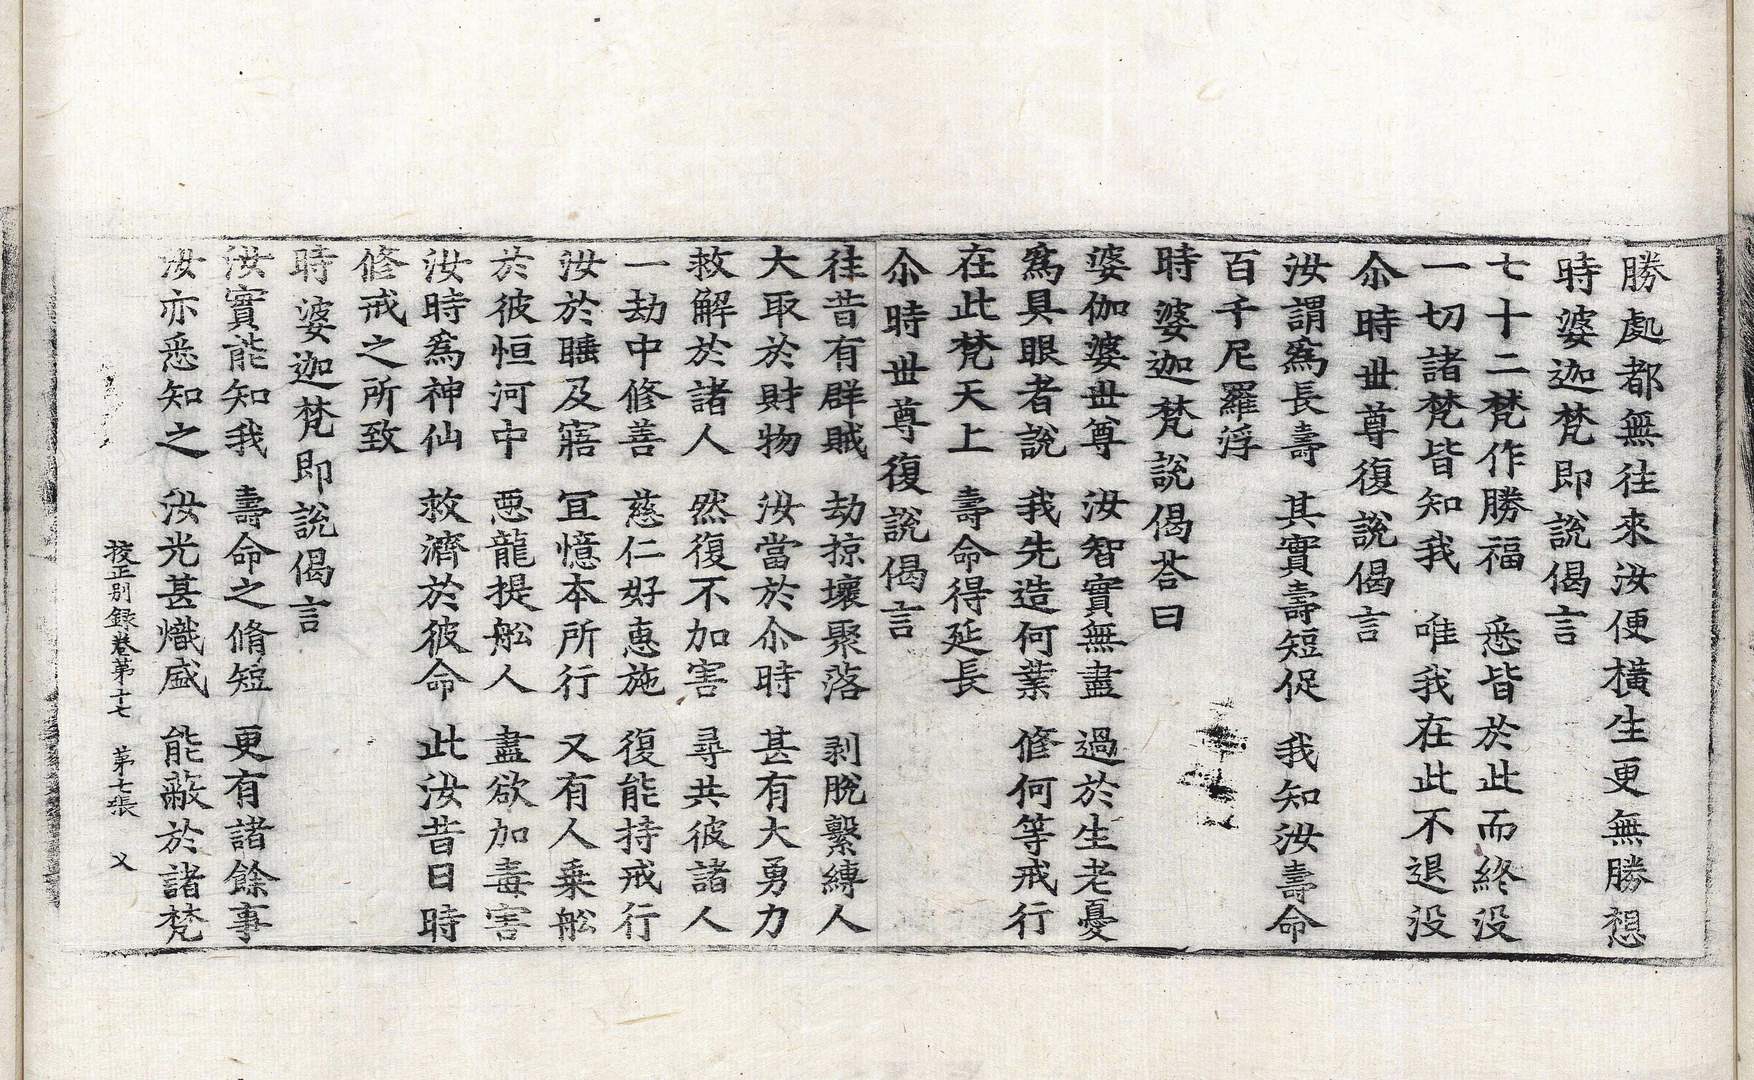 勝處都無往來汝便橫生更無勝想
時婆迦梵即說偈言
七十二梵作勝福　悉皆於此而終没
一切諸梵皆知我　唯我在此不退没
尒時世尊復說偈言
汝謂爲長壽　其實壽短促　我知汝壽命
百千尼羅浮
時婆迦梵說偈荅曰
婆伽婆世尊　汝智實無盡　過於生老憂
爲具眼者說　我先造何業　修何等戒行
在此梵天上　壽命得延長
尒時世尊復說偈言
往昔有群賊　劫掠壞聚落　剥脫繫縛人
大取於財物　汝當於尒時　甚有大勇力
救解於諸人　然復不加害　尋共彼諸人
一劫中修善　慈仁好惠施　復能持戒行
汝於睡及寤　冝憶本所行　又有人乗舩
於彼恒河中　惡龍提舩人　盡欲加毒害
汝時爲神仙　救濟於彼命　此汝昔日時
修戒之所致
時婆迦梵即說偈言
汝實能知我　壽命之脩短　更有諸餘事
汝亦悉知之　汝光甚熾盛　能蔽於諸梵
挍正別録卷第十七　第七張　义